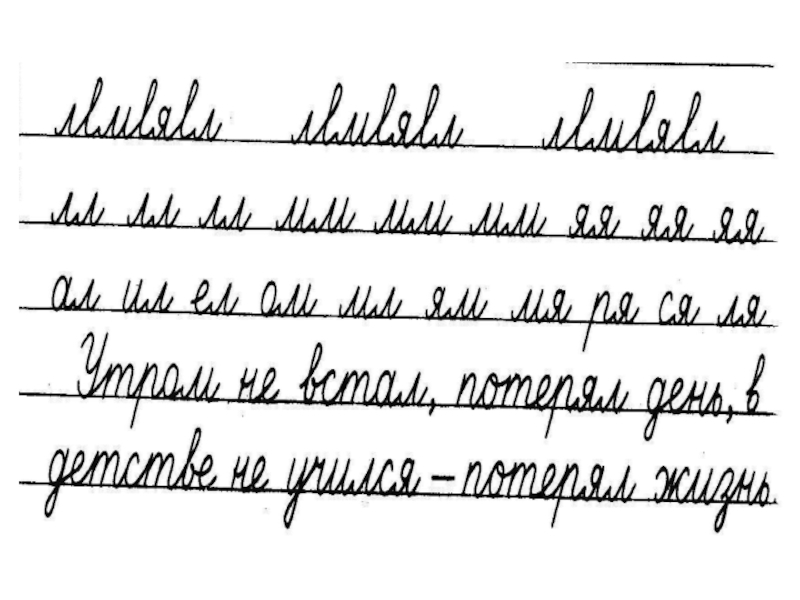 лл лл лл мм мм мм яя яя яя
ал ил ел ом мл ям мя ря ся ля
Утром не встал, потерял день, в
детстве не учился – потерял жизнь.